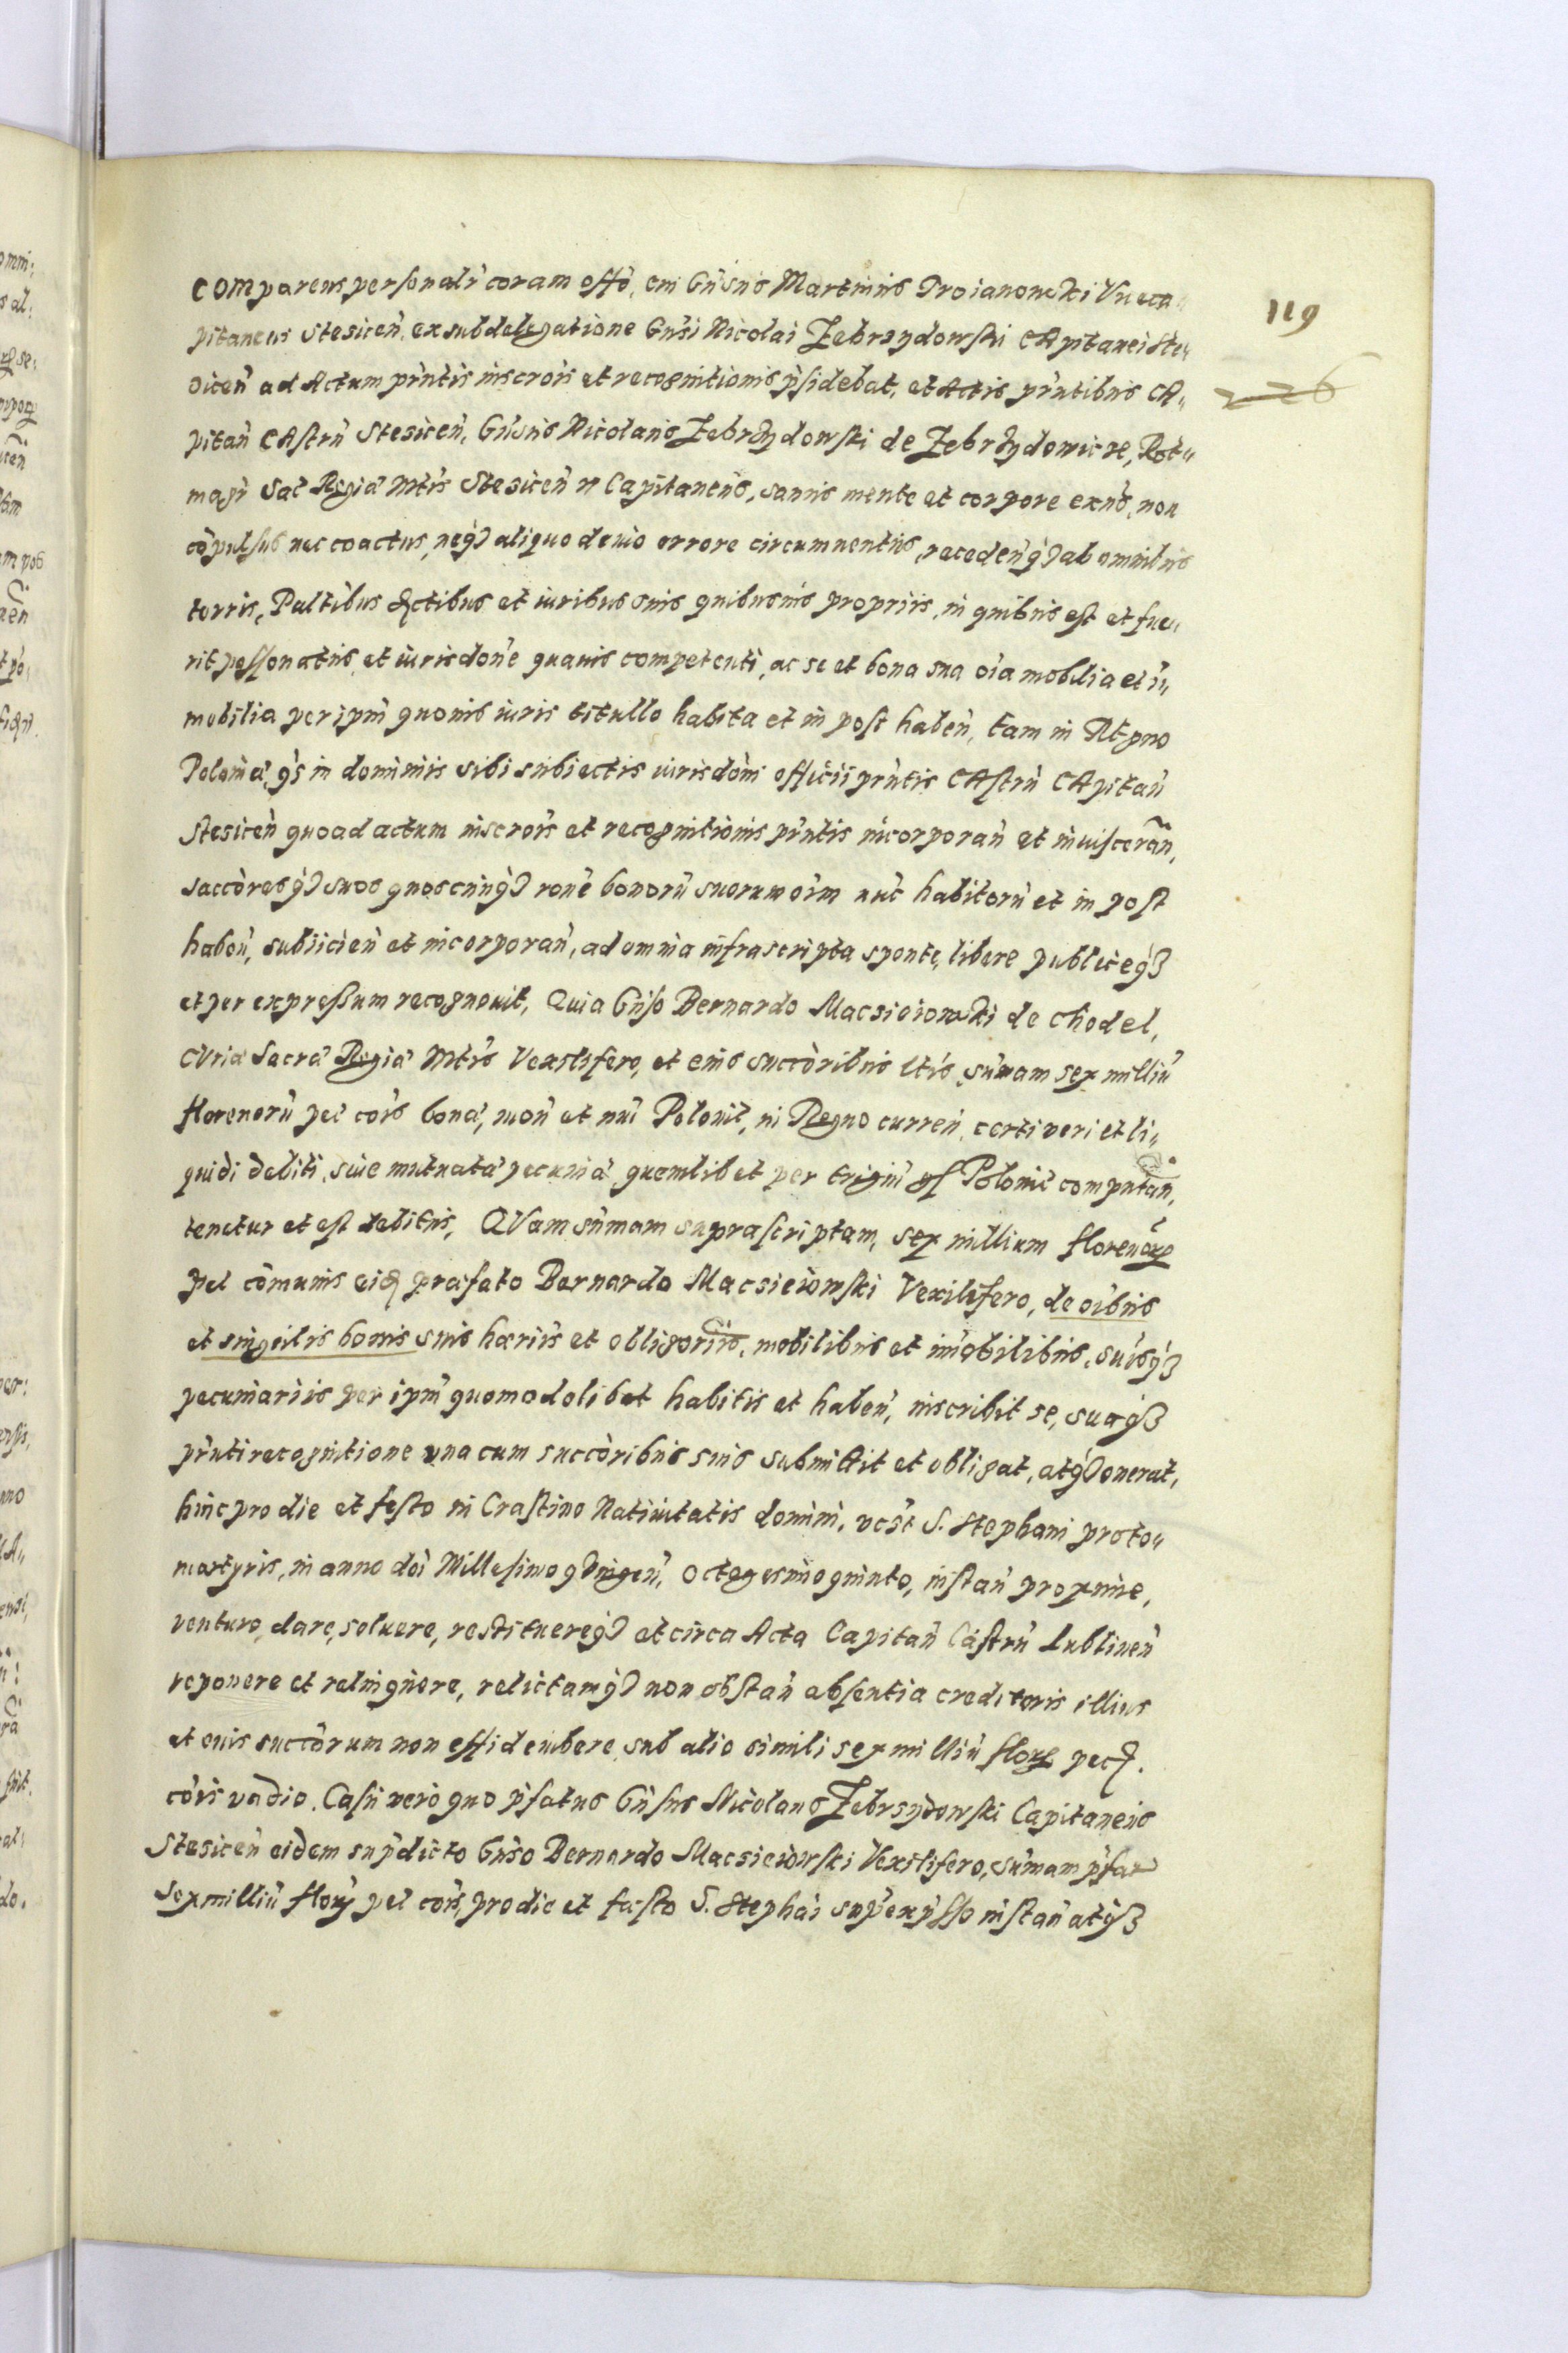 119
226
COMparens personalr coram offo, cui Gnsus Martinus Troianowski Vueca„
pitaneus Stesicen, ex subdelegatione Gnsi Nicolai Zebrzydowski CApitanei Ste„
sicen ad Actum pnntis inscrois et recognitionis psidebat, et Actis pnntibus CA„
pitan CAstrn Stesicen, Gnsus Nicolaus Zebrzydowski de Zebrzydowicze, Rot„
magr Sac Regia Mtis Stesicen Capitaneus, sanus mente et corpore exns, non
copulsus nec coactus, neqz aliquo deuio errore circumuentus, recedenqz ab omnibus
terris, Paltibus dictibus et iuribus suis quibusuis propriis, in quibus est et fue„
rit possonatus, et iurisdone quauis competenti, ac se et bona sua oia mobilia et ii„
mobilia per ipm quouis iuris titullo habita et in post haben, tam in Regno
Polonia, qs in dominiis sibi subiectis iurisdoni officii pnntis CAstrn CApitan
Stesicen quoad actum inscrois et recognitionis pnntis incorporan et inuisceran,
saccoresqz suos quoscunqz rone bonoru suorum oim nuc habitoru et in post
haben, subiicien et incorporan, ad omnia infrascripta sponte, libere publiceqz
et per expressum recognouit, Quia Gnso Bernardo Macsieiowski de Chodel,
CVria Sacra Regia Mtis Vexilifero, et eius succoribus ltis, sumam sex milliu
florenoru pec cois bona, mon et nui Polonic, in Regno curren, certi veri et li„
quidi debiti, siue mutuata pecunia quemlibet per trigin gs Polonic computan,
tenetur et est debitus, QVam sumam suprascriptam, sex millium florenorum
pec comunis eidem prafato Bernardo Macsieiowski Vexilifero, de oibus
et singulis bonis suis haeriis et obligoriis, mobilibus et imobilibus, suisqz
pecuniariis per ipm quomodolibet habitis et haben, inscribit se, suaqz
pnnti recognitione vna cum succoribus suis submittit et obligat, atqz onerat,
hinc pro die et festo in Crastino Natiuitatis domini, vest S. Stephani proto„
martyris, in anno doi Millesimo qvingen, Octogesimo quinto, instan proxime,
venturo, dare, soluere, restituereqz et circa Acta Capitan Castrn Lublinen
reponere et relinquere, relictamqz non obstan absentia creditoris illius
et euis succorum non effideiubere, sub alio simili sex milliu florum pec.
cois vadio. Casu vero quo pfatus Gnsus Nicolaus Zebrsydowski Capitaneus
Stesicen eidem supdicto Gnso Bernardo Macsieiowski Vexilifero, sumam pfat
sex milliu floru pec cois, pro die et festo S. Stephai supexpsso instan atqz